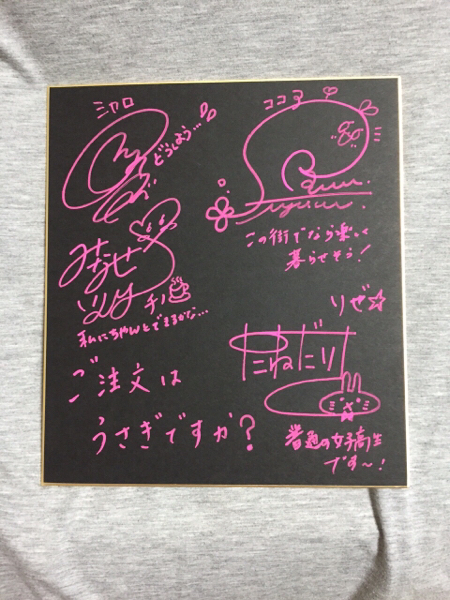 シャロ
どうしよう…
ココア
この街でなら楽しく
暮らせそう!
みなせ
いのり
チノ
私にちゃんとできるかな…
リゼ☆
たねだり
ご注文は
うさぎですか?
普通の女子高生
です〜!